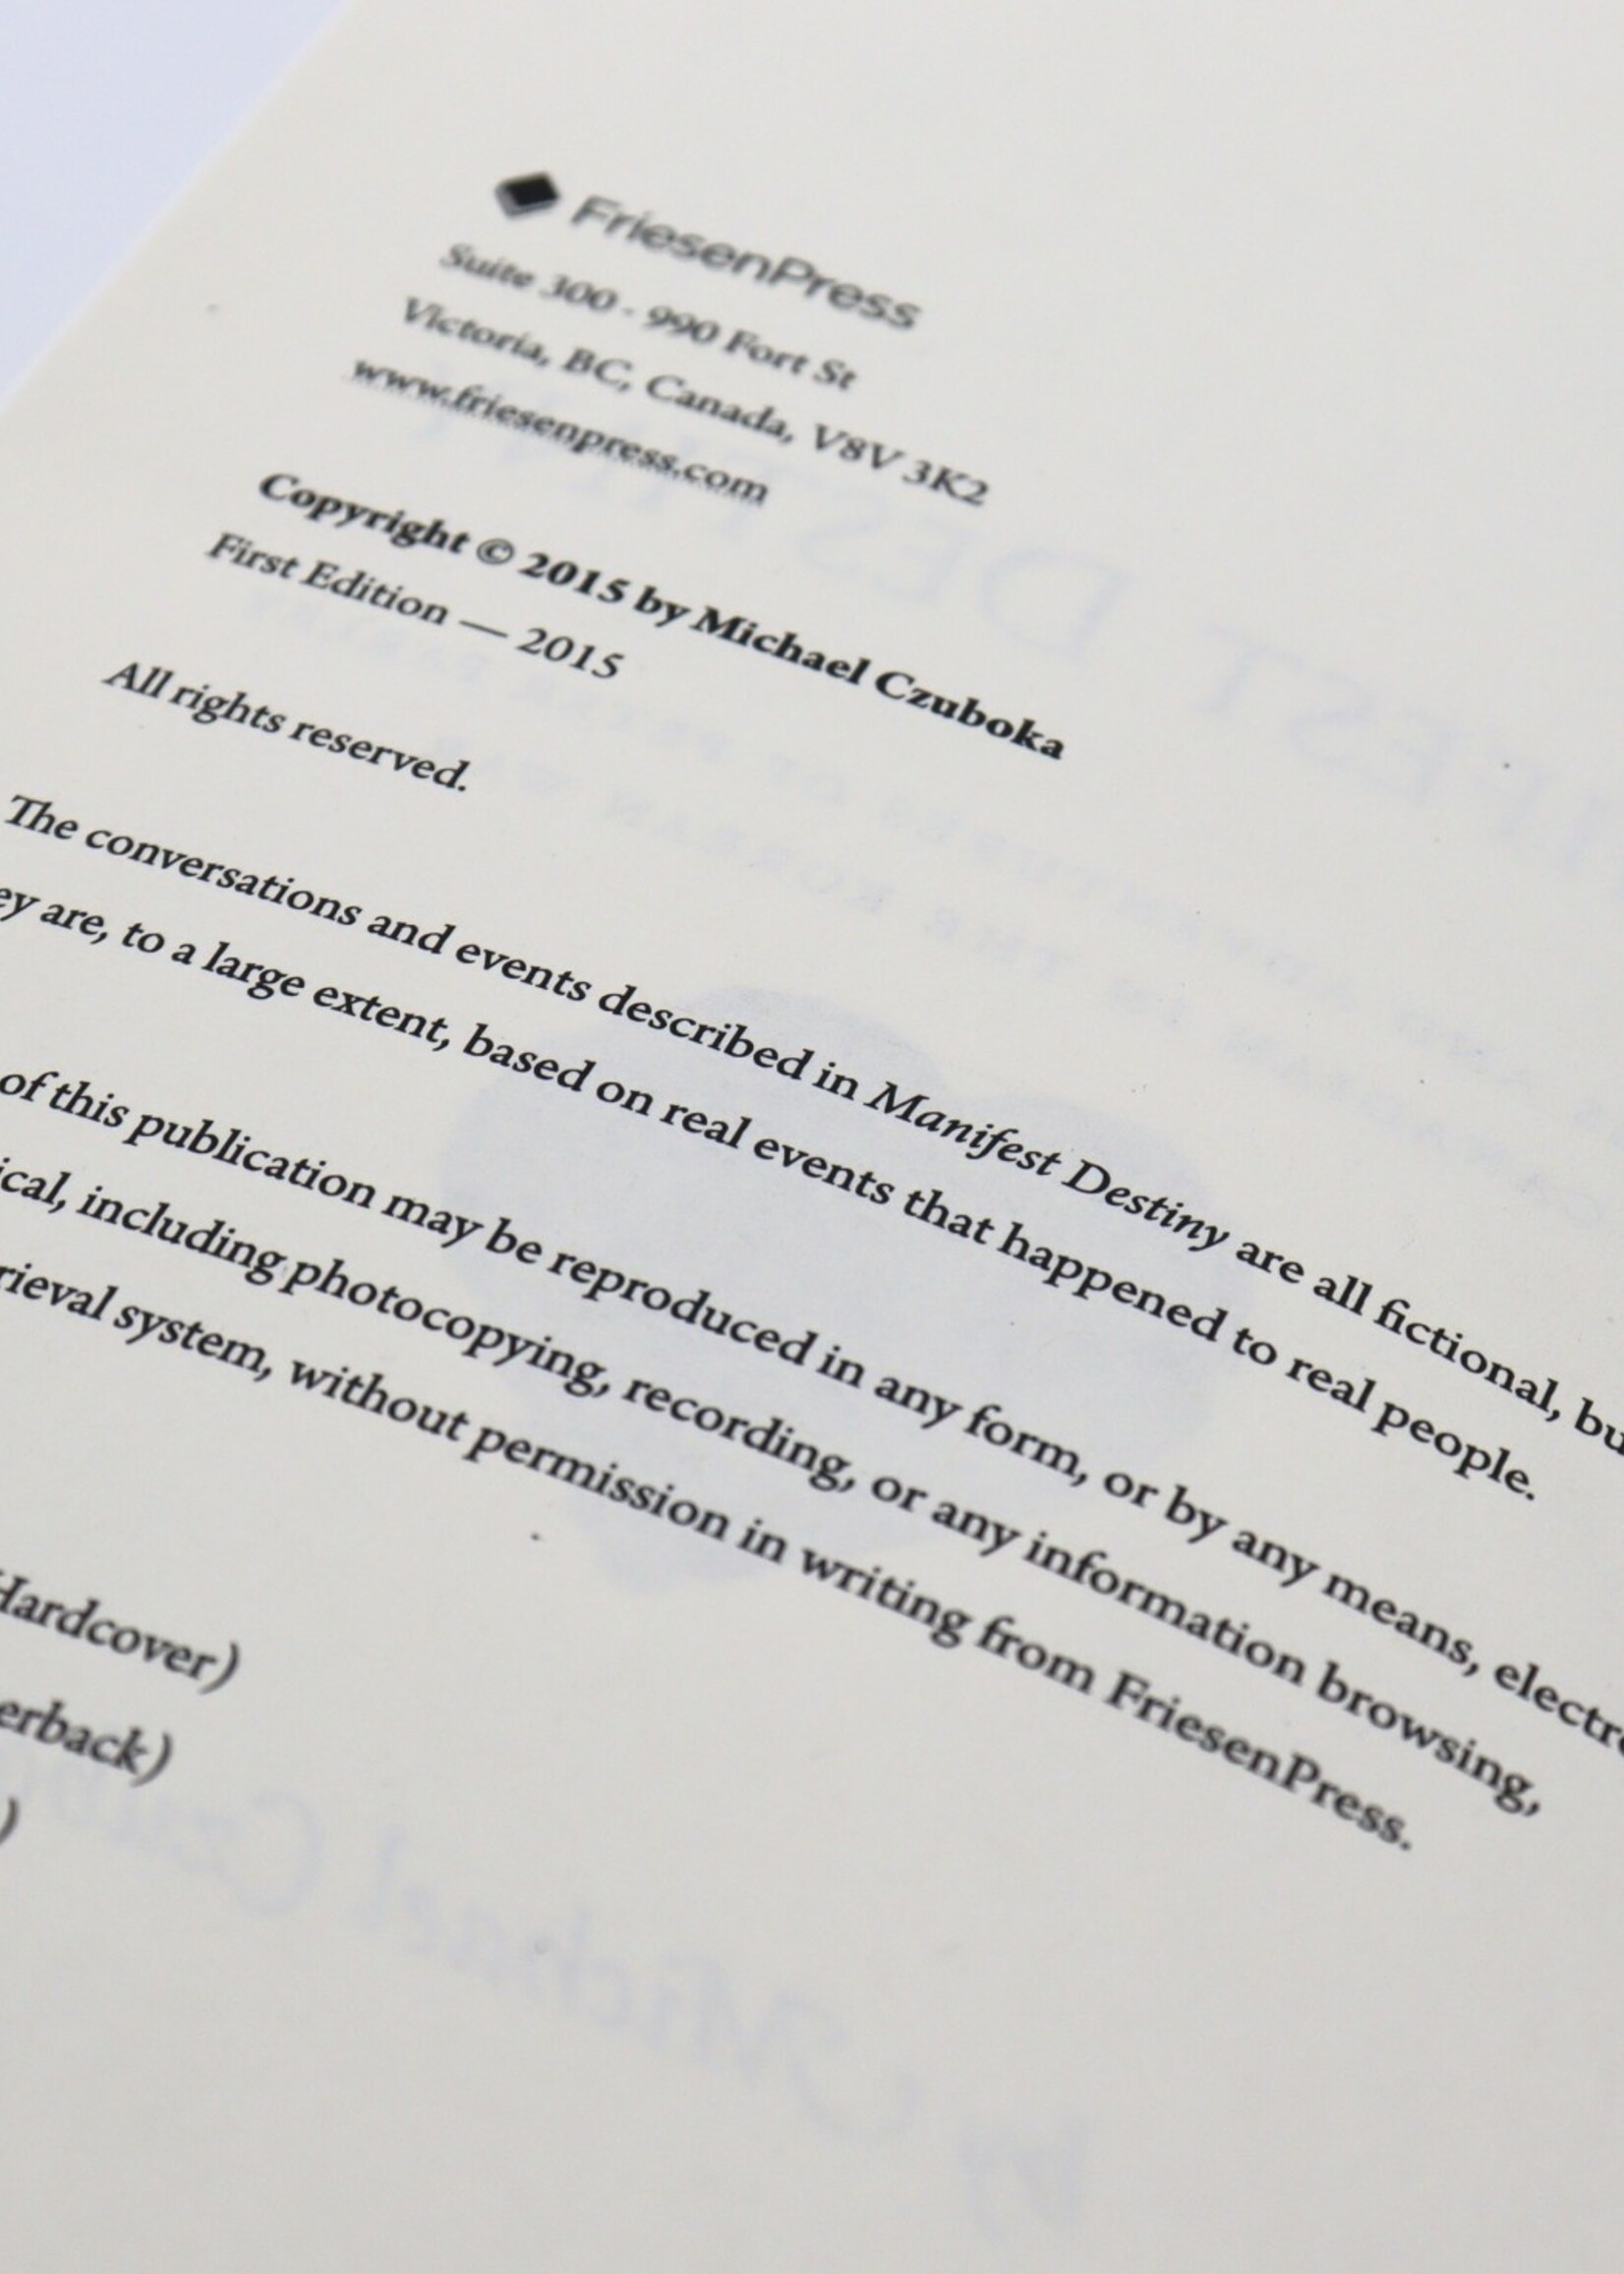 FriesenPress
Suite 300 - 990 Fort St
Victoria, BC, Canada, V8V 3K2
www.friesenpress.com
Copyright © 2015 by Michael Czuboka
First Edition — 2015
All rights reserved.
The conversations and events described in Manifest Destiny are all fictional, bu
ey are, to a large extent, based on real events that happened to real people.
of this publication may be reproduced in any form, or by any means, electro
ical, including photocopying, recording, or any information browsing,
rieval system, without permission in writing from FriesenPress.
Hardcover)
erback)
)